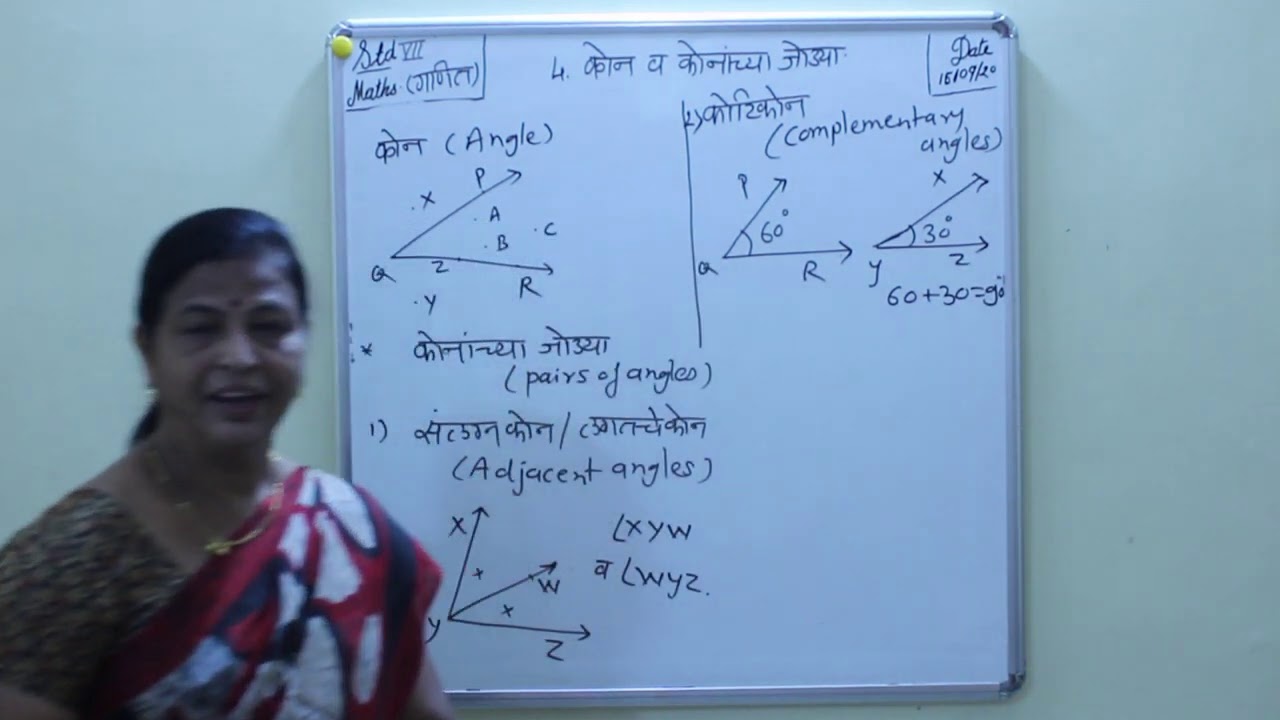 Std VII
Maths. (गणित)
4. कोन व कोनांच्या जोड्या.
Date
15/09/20
कोन (Angle)
P
X
A
B
C
Q
Z
R
Y
* कोनांच्या जोड्या
(pairs of angles)
1) संलग्न कोन / लगतचे कोन
(Adjacent angles)
X
W
Y
Z
∠XYW
व ∠WYZ.
2) कोटिकोन
(Complementary
angles)
P
60°
Q
R
X
30°
Y
Z
60+30=90°